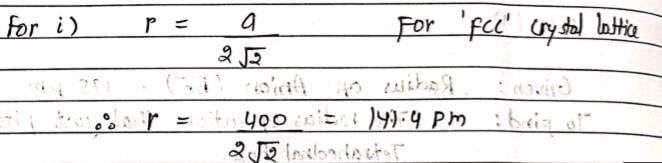 for i) r = a / 2√2 For 'FCC' crystal lattice
∴ r = 400 / 2√2 = 141.4 pm